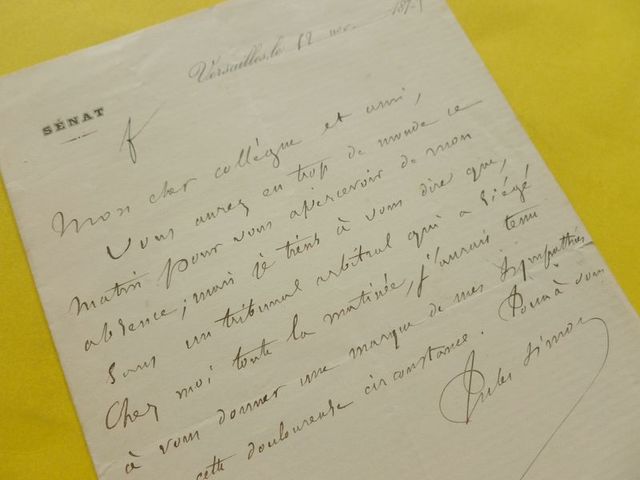 Versailles, le 12 nov. 187
SÉNAT
Mon cher collégue et ami,
Vous aurez eu trop de monde ce
matin pour vous apercevoir de mon
absence; mais je tiens à vous dire que,
sans un tribunal arbitral qui a siégé
chez moi toute la matinée, j'aurais tenu
à vous donner une marque de mes sympathies
cette douloureuse circonstance. Tout à vous
Jules Simon